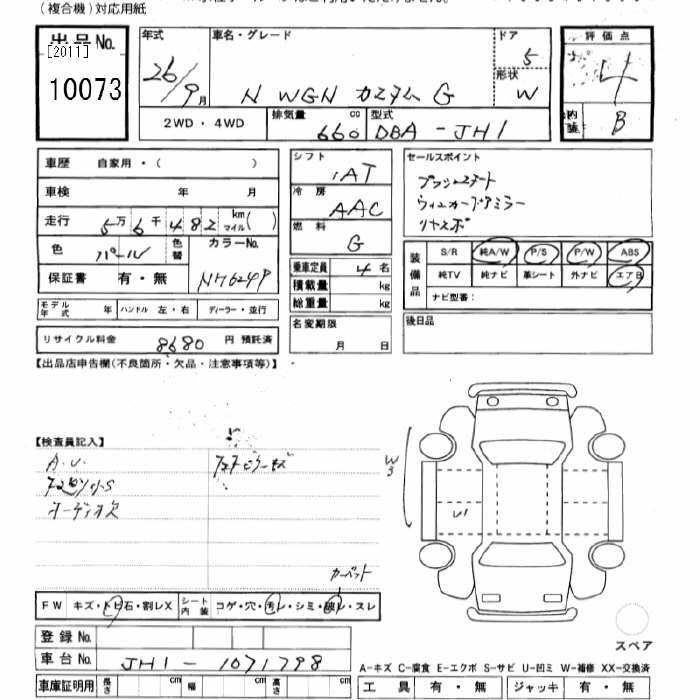 (複合機)対応用紙
出品No.
[2011]
10073
年式
26/9月
車名・グレード
N WGN カスタム G
ドア
5
形状
W
評価点
4
内装
B
2WD・4WD
排気量
660 cc
型式
DBA-JH1
車歴 自家用・( )
車検 年 月
走行 5万6千482 km マイル( )
色 パール
色替
カラーNo.
NH624P
保証書 有・無
モデル年式 年 ハンドル 左・右 ディーラー・並行
リサイクル料金 8680 円 預託済
シフト
IAT
冷房
AAC
燃料
G
乗車定員 4名
積載量 kg
総重量 kg
名変期限
月 日
セールスポイント
プッシュスタート
ウィンカードアミラー
リヤスポ
装備品
S/R 純A/W P/S P/W ABS
純TV 純ナビ 革シート 外ナビ エアB
ナビ型番:
後日品
【出品店申告欄(不良箇所・欠品・注意事項等)】
【検査員記入】
A.U.
オーディオ欠
W3
U1
カーペット
FW キズ・トビ石・割レX
シート内装 コゲ・穴・汚レ・シミ・破レ・スレ
登録No.
車台No. JH1-1071798
車庫証明用 長さ cm 幅 cm 高さ cm
スペア
A-キズ C-腐食 E-エクボ S-サビ U-凹ミ W-補修 XX-交換済
工具 有・無 ジャッキ 有・無